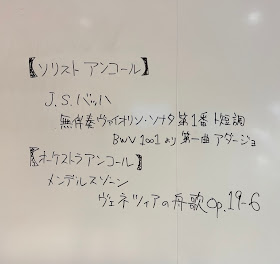 【ソリスト アンコール】
J.S.バッハ
無伴奏ヴァイオリン・ソナタ 第1番 ト短調
BWV 1001より 第一曲 アダージョ
【オーケストラアンコール】
メンデルスゾーン
ヴェネツィアの舟歌 Op.19-6